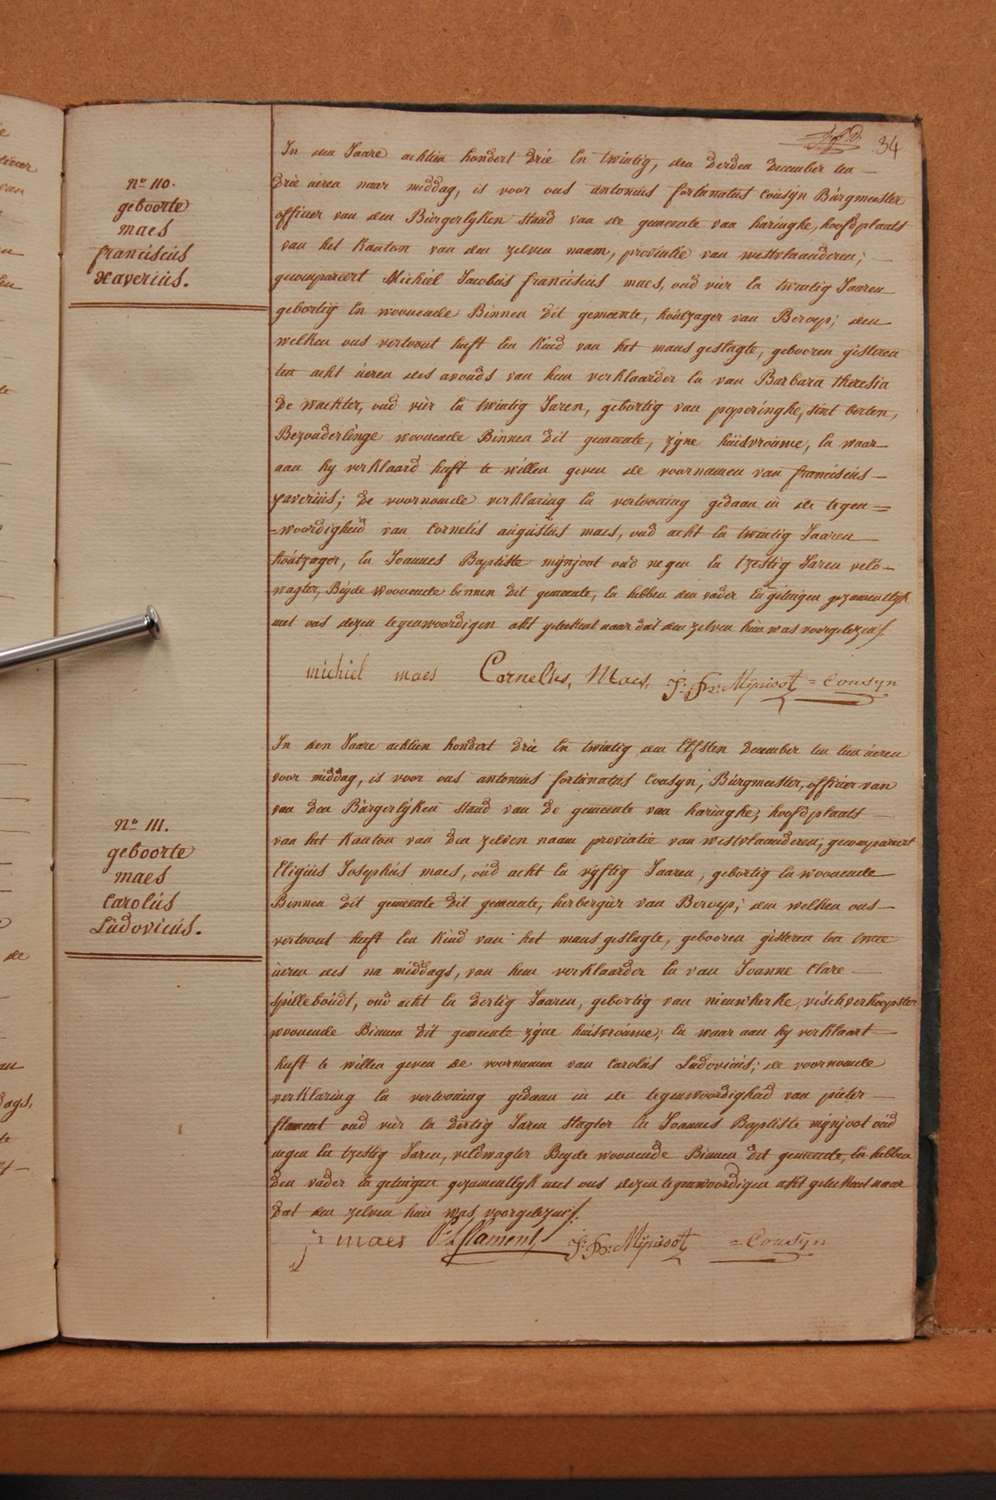 34
No 110.
geboorte
maes
franciscus
xaverius.
In den Jaare achtien hondert drie en twintig, den derden december ten
drie ueren naar middag, is voor ons antonius fortunatus Cousyn Burgmeester
officier van den Burgerlyken staed van de gemeente van haringhe, hoofdplaats
van het Kanton van den zelven naam, provintie van westvlaanderen;
gecompareert Michiel Jacobus franciscus maes, oud vier en twintig Jaaren
gebortig en woonende Binnen dit gemeente, houtzager van Beroep; den
welken ons vertoont heeft een Kind van het mans geslagte, gebooren gisteren
ten acht ueren des avonds van hem verklaarder en van Barbara theresia
de wachter, oud vier en twintig Jaren, gebortig van poperinghe, sint berten,
Bezonderlinge woonende Binnen dit gemeente, zyne huisvrouwe, en waar
aan hy verklaard heeft te willen geven de voornamen van franciscus
xaverius; de voornoemde verklaring en vertooning gedaan in de tegen=
=woordigheid van Cornelis augustus maes, oud acht en twintig Jaaren
houtzager, en Joannes Baptiste mynjoot oud negen en tzestig Jaren veld-
wagter, Beyde woonende binnen dit gemeente, en hebben den vader en geteigen gezamentlyk
met ons dezen tegenwoordigen akt geteekent naar dat den zelven hun was voorgelezen/.
michiel maes Cornelis, Maes, J: Bte: Mijnsoot =Cousyn
No 111.
geboorte
maes
Carolus
Ludovicus.
In den Jaare achtien hondert drie en twintig, den Elfsten december ten tien ueren
voor middag, is voor ons antonius fortunatus Cousyn, Burgmeester, officier van
van den Burgerlyken staed van de gemeente van haringhe; hoofdplaats
van het Kanton van den zelven naam provintie van westvlaanderen; gecompareert
Eligius Josephus maes, oud acht en vyftig Jaaren, gebortig en woonende
Binnen dit gemeente dit gemeente, herbergier van Beroep; den welken ons
vertoont heeft een Kind van het mans geslagte, gebooren gisteren ten twee
ueren des na middags, van hem verklaarder en van Joanne Clare
spilleboudt, oud acht en dertig Jaaren, gebortig van nieuwkerke, vischverkoopster
woonende Binnen dit gemeente zyne huisvrouwe; en waar aan hy verklaart
heeft te willen geven de voornamen van Carolus Ludovicus; de voornoemde
verklaring en vertooning gedaan in de tegenwoordigheid van pieter
flament oud vier en dertig Jaren slagter en Joannes Baptiste mynjoot oud
negen en tzestig Jaren, veldwagter Beyde woonende Binnen dit gemeente, en hebben
den vader en geteigen gezamentlyk met ons dezen tegenwoordigen akt geteekent naar
dat den zelven hun was voorgelezen/.
j: maes P: Flament, J: Bte: Mijnsoot =Cousyn